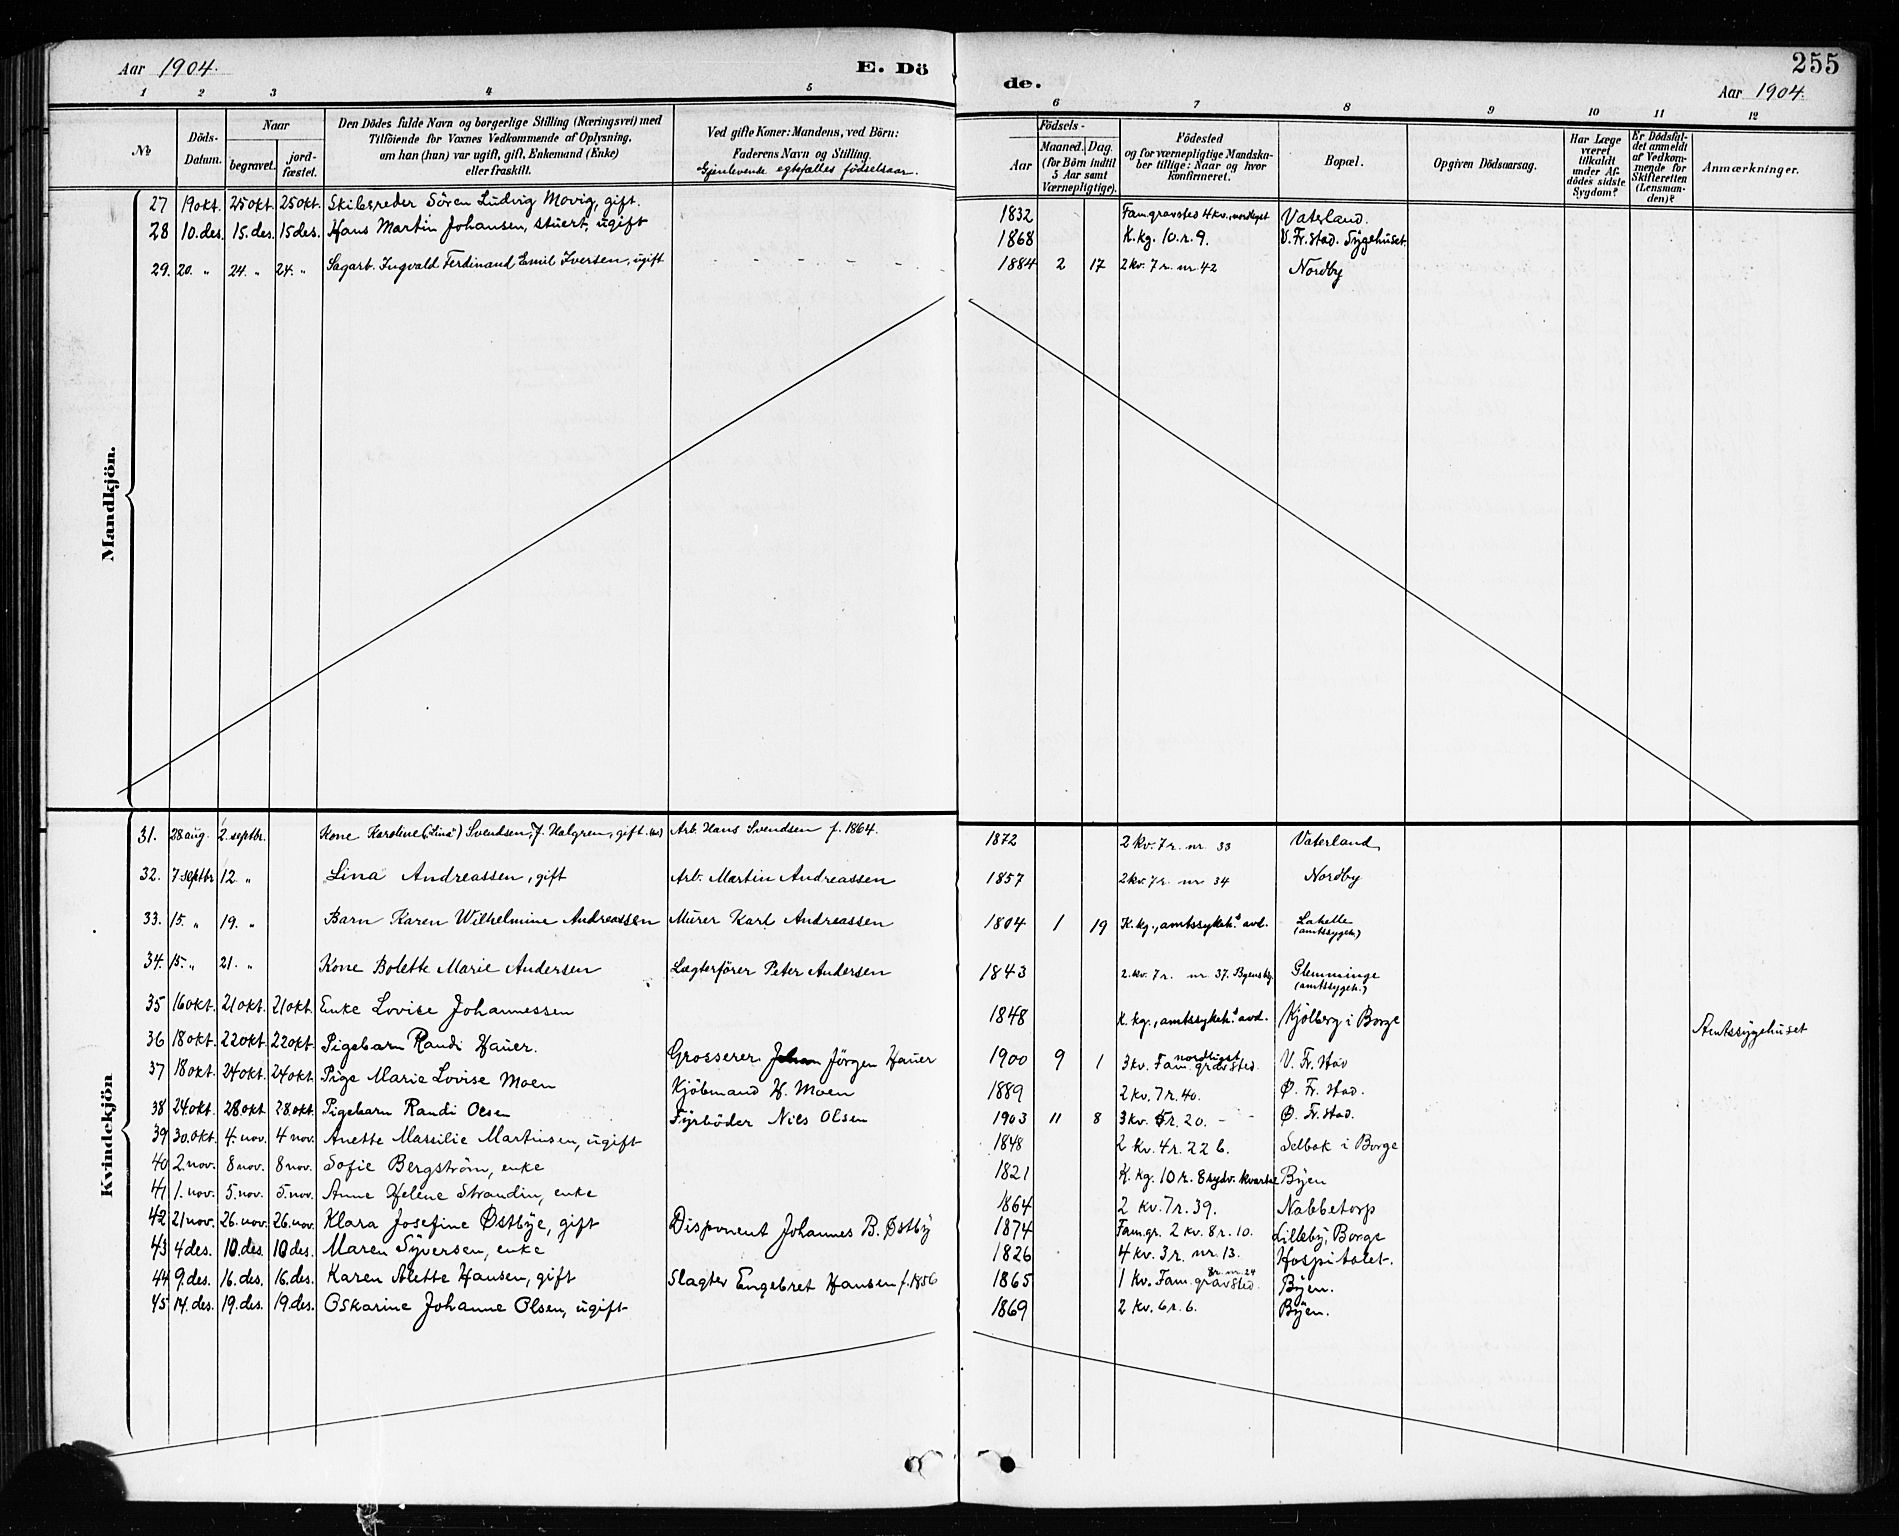 255
Aar 1904.
E. Dö
de.
Aar 1904.
1 2 3 4 5 6 7 8 9 10 11 12
№
Döds-
Datum.
Naar
begravet.
jord-
fæstet.
Den Dödes fulde Navn og borgerlige Stilling (Næringsvei) med
Tilföiende for Voxnes Vedkommende af Oplysning,
om han (hun) var ugift, gift, Enkemand (Enke)
eller fraskilt.
Ved gifte Koner: Mandens, ved Börn:
Faderens Navn og Stilling.
Gjenlevende egtefælles födselsaar.
Födsels-
Aar
Maaned.
Dag.
(for Börn indtil
5 Aar samt
Værnepligtige).
Födested
og for værnepligtige Mandska-
ber tillige: Naar og hvor
konfirmeret.
Bopæl.
Opgiven Dödsaarsag.
Har Læge
været
tilkaldt
under Af-
dödes sidste
Sygdom?
Er Dödsfal-
det anmeldt
af Vedkom-
mende for
Skifteretten
(Lensman-
den)?
Anmærkninger.
Mandkjön.
27 19 okt. 25 okt. 25 okt. Skibsreder Sören Ludvig Movig, gift. 1832 Fam.gravsted 4 kv., nordligst Vaterland.
28 10. des. 15. des. 15 des. Hans Martin Johansen, stuert, ugift 1868 K.kg. 10. r. 9. V. Fr.stad. Sygehuset.
29. 20. " 24. " 24. " Sagarb. Ingvald Ferdinand Emil Iversen, ugift - - - - - 1884 2 17 2 kv. 7 r. nr. 42 Nordby
Kvindekjön
31. 28 aug. 2. septbr. Kone Karoline ("Lina") Svendsen, f. Halgren, gift. Arb. Hans Svendsen f. 1864. 1872 2 kv. 7 r. nr. 33 Vaterland
32. 7 septbr 12 " Lina Andreassen, gift Arb. Martin Andreassen 1857 2 kv. 7 r. nr 34 Nordby
33. 15. " 19. " Barn Karen Wilhelmine Andreassen Murer Karl Andreassen 1804 1 19 K.kg., amtssykeh.s avd. Lahelle (amtssygeh.)
34. 15. " 21. " Kone Bolette Marie Andersen Lægterförer Peter Andersen 1843 2. kv. 7 r. nr. 37. Glemminge (amtssygeh.)
35 16 okt. 21 okt. 21 okt. Enke Lovise Johannessen 1848 K.kg., amtssykeh.s avd. Kjölberg i Borge Amtssygehuset
36 18 okt. 22 okt. 22 okt. Pigebarn Randi Hauer. Grosserer Jörgen Hauer 1900 9 1 3 kv. Fam.gravsted. nordligst V. Fr. stad
37 18 okt. 24 okt. 24 okt. Pige Marie Lovise Moen Kjöbmand H. Moen 1889 2 kv. 7 r. 40. Ø. Fr. stad.
38 24 okt. 28 okt 28. okt. Pigebarn Randi Olsen Fyrböder Nils Olsen 1903 11 8 3 kv. 5 r. 20. - - Ø. Fr. stad.
39 30. okt. 4. nov. 4 nov. Anette Massilie Martinsen, ugift 1848 2 kv. 4 r. 22 b. Selbak i Borge
40 2. nov. 8 nov. 8 nov. Sofie Bergström, enke 1821 K. kg. 10 r. 8 Byen
41 1. nov. 5. nov. 5. nov. Anne Helene Strandin, enke 1864 2 kv. 7 r. 39. Nabbetorp
42 21 nov. 26. nov. 26. nov. Klara Josefine Østbye, gift Disponent Johannes B. Østby 1874 Fam.gr. 2 kv. 8 r. 10. Lilleby, Borge
43 4 des. 10. des. 10 des. Maren Syversen, enke 1826 4 kv. 3 r. nr. 13. Hospitalet.
44 9. des. 16. des. 16. des. Karen Alette Hansen, gift Slagter Engebret Hansen f. 1856 1865 1 kv. Fam.gravsted. 8 r. nr. 24 Byen.
45 14. des. 19. des. 19. des. Oskarine Johanne Olsen, ugift 1869 2 kv. 6 r. 6. Byen.